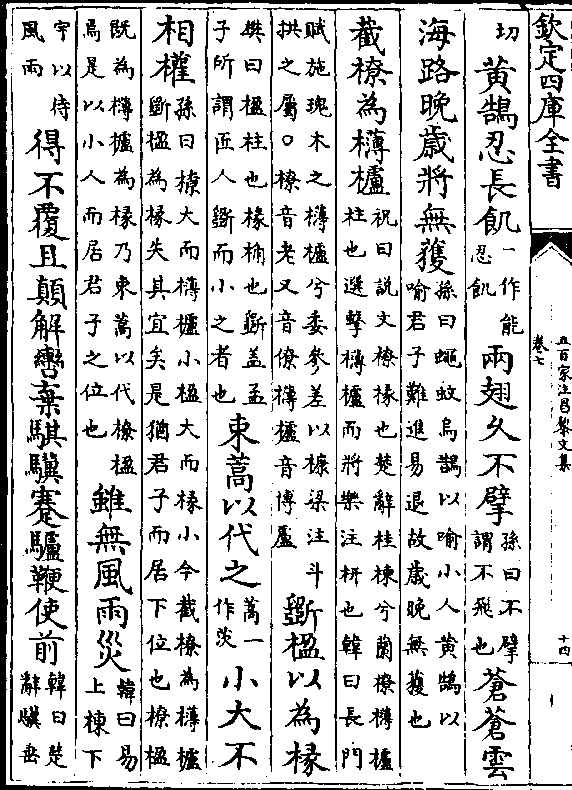 欽定四庫全書
五百家注昌黎文集
卷七
十四
切 黃鵠忍長飢 一作能忍飢 兩翅久不擘 孫曰不擘謂不飛也 蒼蒼雲
海路晚歲將無獲 孫曰蠅蚊烏鵲以喻小人黃鵠以喻君子難進易退故歲晚無獲也
截橑為欂櫨 祝曰說文橑椽也楚辭桂棟兮蘭橑欂櫨柱也選擊欂櫨而將樂注枅也韓曰長門
賦施瑰木之欂櫨兮委參差以槺梁注斗拱之屬○橑音老又音僚欂櫨音博盧 斲楹以為椽
樊曰楹柱也椽桷也斲蓋孟子所謂匠人斲而小之者也 束蒿以代之 蒿一作茨 小大不
相權 孫曰橑大而欂櫨小楹大而椽小今截橑為欂櫨斲楹為椽失其宜矣是猶君子而居下位也橑楹
既為欂櫨為椽乃束蒿以代橑楹焉是以小人而居君子之位也 雖無風雨災 韓曰易上棟下
宇以待風雨 得不覆且顛解轡棄騏驥蹇驢鞭使前 韓曰楚辭驥垂